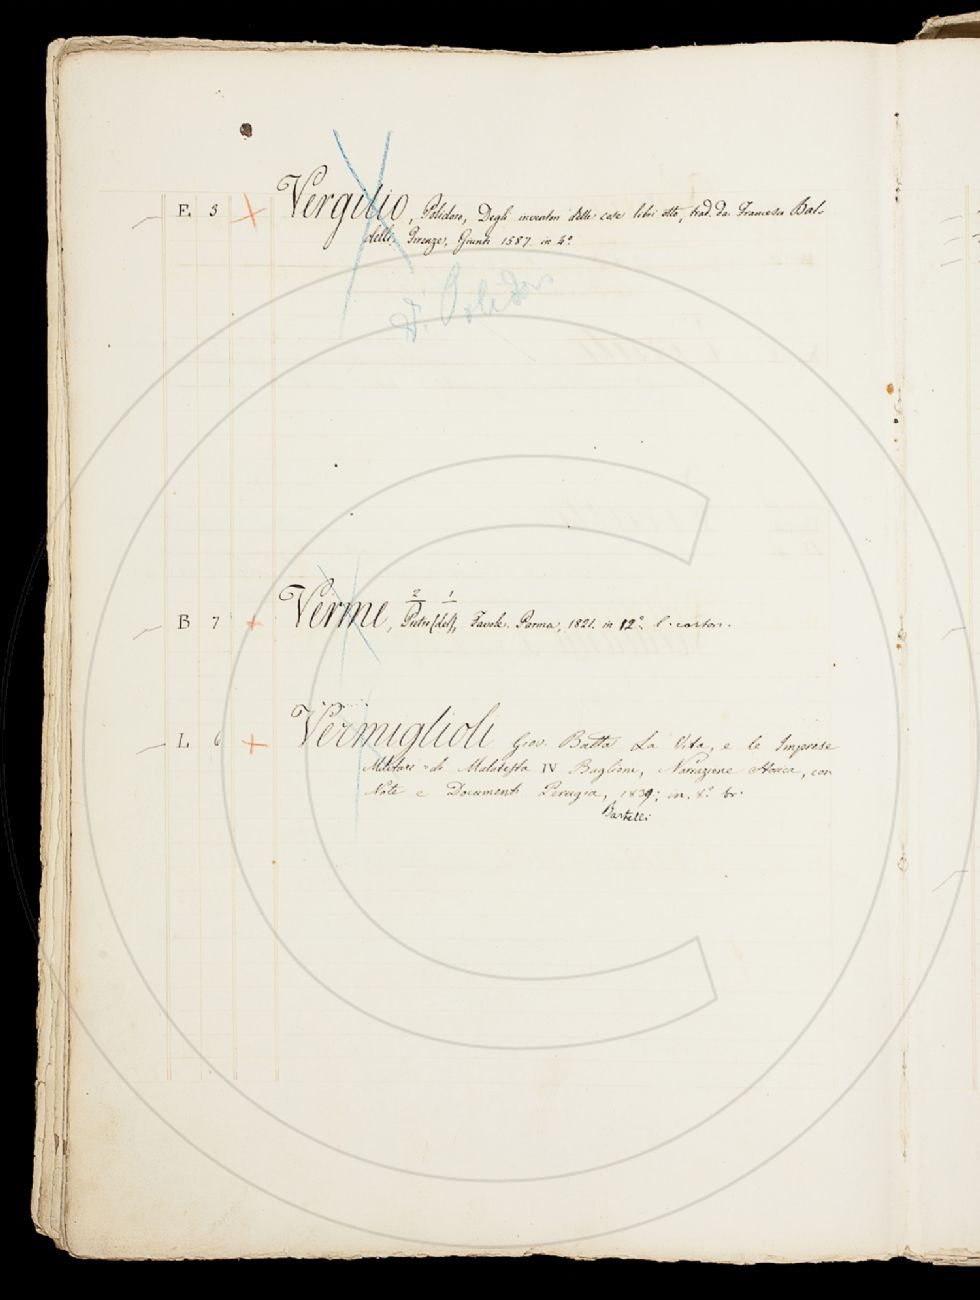 F. 5 Vergilio, Polidoro, Degli inventori delle cose libri otto, trad. da Francesco Bal-
delli. Firenze, Giunti 1587. in 4.º
V. Polidoro
B 7 Verme, 2 1 Pietro (del), Favole. Parma, 1821. in 12º
L 6 Vermiglioli Giov. Batta La Vita, e le Imprese
Militari di Malatesta IV Baglioni, Narrazione storica, con
Note e Documenti Perugia, 1839; in. 8º br.
Bartelli